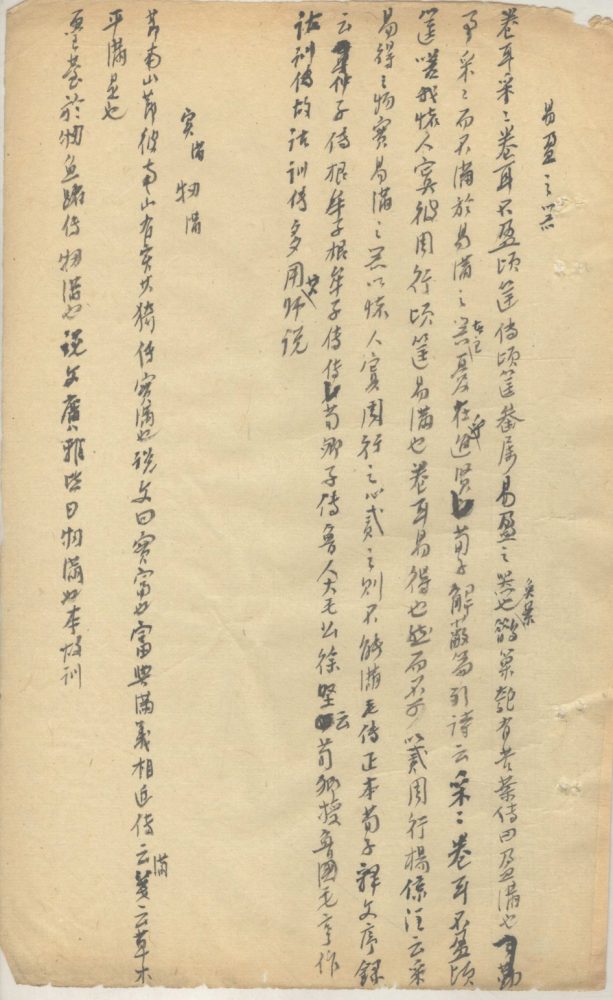 易盈之器
卷耳采〻卷耳不盈頃筐傳頃筐畚屬易盈之器也鵲巢匏有苦葉傳曰盈滿也
采〻而不滿於易滿之器憂在進賢荀子解蔽篇引詩云采〻卷耳不盈頃
筐嗟我懷人寘彼周行頃筐易滿也卷耳易得也然而不可以貳周行楊倞注云采
易得之物實易滿之器以懷人寘周行之心貳之則不能滿毛傳正本荀子釋文序錄
云子傳根牟子根牟子傳荀卿子荀卿子傳魯人大毛公徐堅云荀卿授魯國毛亨作
詁訓傳故詁訓傳多用師說
實滿 牣滿
節南山節彼南山有實其猗傳實滿也說文曰實富也富與滿義相近傳云滿云草木
平滿是也
靈臺於牣魚躍傳牣滿也說文廣雅皆曰牣滿也本故訓